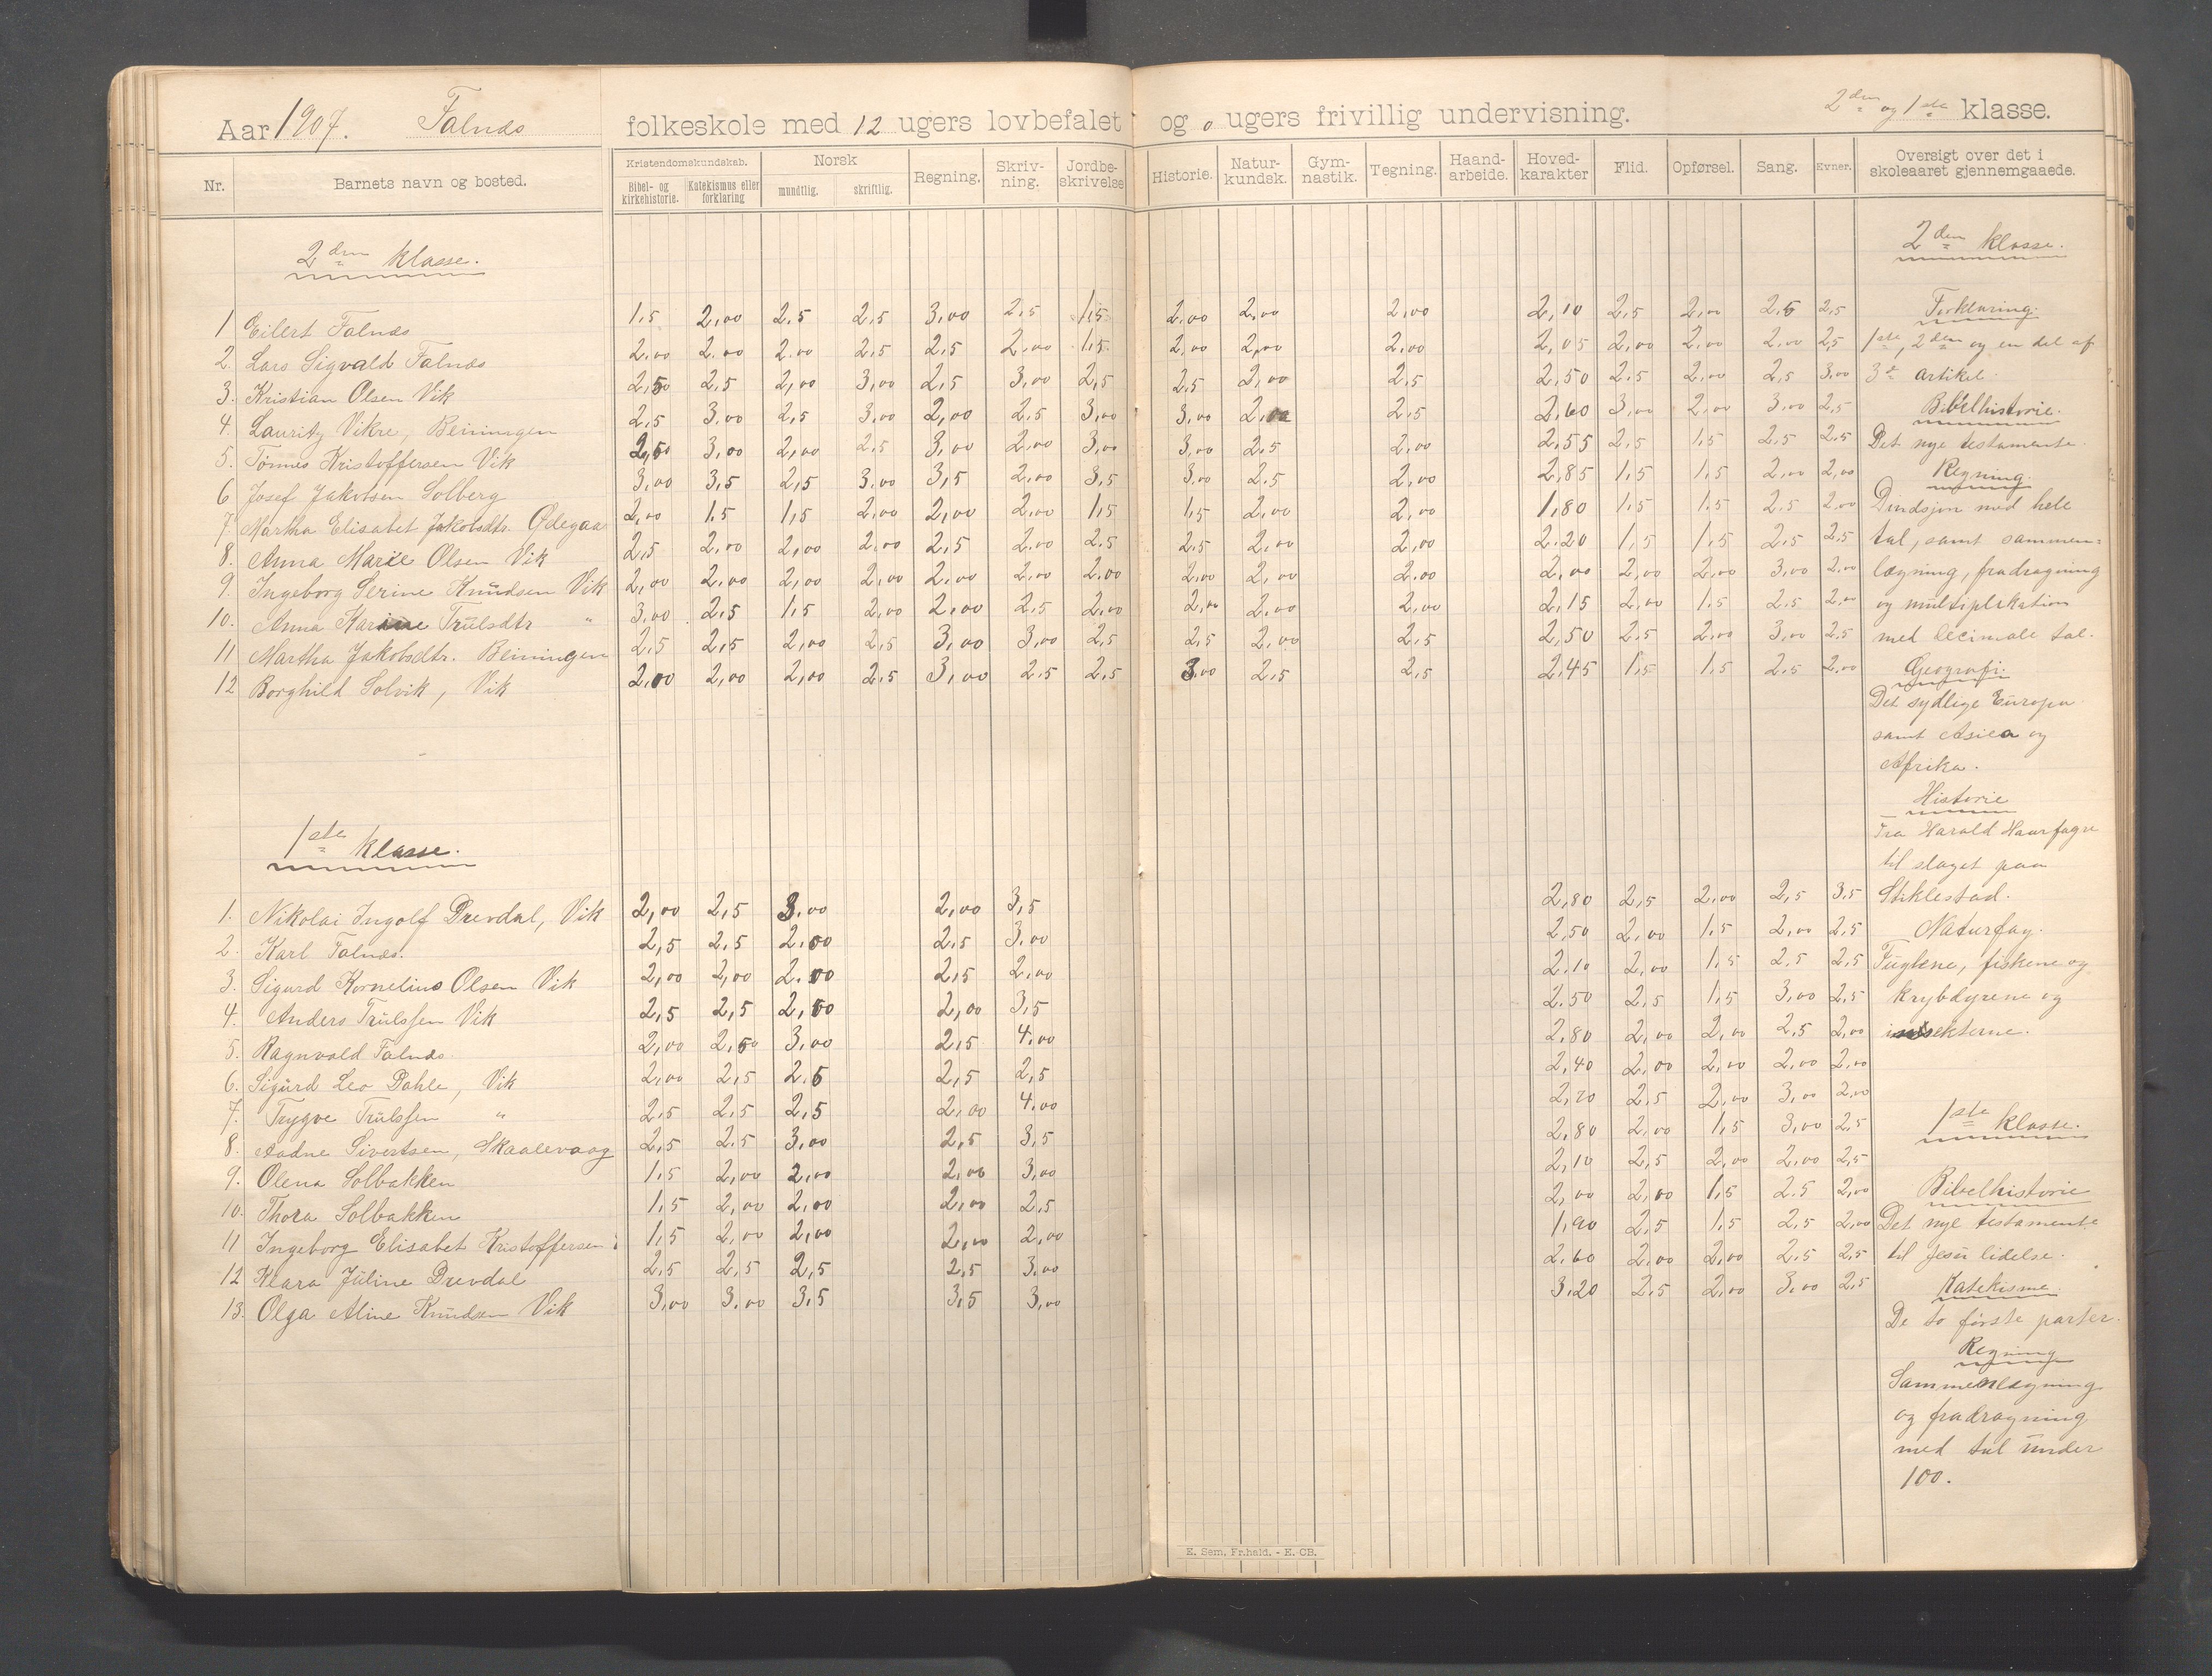 Aar 1907. Falnæs folkeskole med 12 ugers lovbefalet og 0 ugers frivillig undervisning. 2den og 1ste klasse.
Nr. Barnets navn og bosted. Kristendomskundskab. Bibel- og kirkehistorie. Katekismus eller forklaring Norsk mundtlig. skriftlig. Regning. Skriv-ning. Jordbe-skrivelse Historie. Natur-kundsk. Gym-nastik. Tegning. Haand-arbeide. Hoved-karakter Flid. Opførsel. Sang. Evner. Oversigt over det i skoleaaret gjennemgaaede.
2den klasse.
1 Eilert Falnæs 1,5 2,00 2,5 2,5 3,00 2,5 1,5 2,00 2,00 2,00 2,10 2,5 2,00 2,5 2,5
2. Lars Sigvald Falnæs 2,00 2,00 2,00 2,5 2,5 2,00 1,5 2,00 2,00 2,00 2,05 2,00 2,00 2,00 2,5
3. Kristian Olsen Vik 2,50 2,5 2,00 3,00 2,5 3,00 2,5 2,5 2,00 2,5 2,50 2,5 2,00 2,5 3,00
4. Lauritz Vikre, Beiningen 2,5 3,00 2,5 3,00 2,00 2,5 3,00 3,00 2,00 2,5 2,60 3,00 2,00 3,00 2,5
5. Tønnes Kristoffersen Vik 2,50 3,00 2,00 2,5 3,00 2,00 3,00 3,00 2,5 2,00 2,55 2,5 1,5 2,5 2,5
6. Josef Jakobsen Solberg 3,00 3,5 2,5 3,00 3,5 2,00 3,5 3,00 2,5 2,00 2,85 1,5 1,5 2,00 2,00
7. Martha Elisabet Jakobsdtr. Ødegaa 2,00 1,5 1,5 2,00 2,00 2,00 1,5 1,5 2,00 2,00 1,80 1,5 1,5 2,5 2,00
8. Anna Marie Olsen Vik 2,5 2,00 2,00 2,00 2,5 2,00 2,5 2,5 2,00 2,00 2,20 1,5 1,5 2,5 2,5
9. Ingeborg Serine Knudsen Vik 2,00 2,00 2,00 2,00 2,00 2,00 2,00 2,00 2,00 2,00 2,00 2,00 2,00 3,00 2,00
10. Anna Karine Trulsdtr " 3,00 2,5 1,5 2,00 2,00 2,5 2,00 2,00 2,00 2,00 2,15 2,00 1,5 2,5 2,00
11 Martha Jakobsdtr. Beiningen 2,5 2,5 2,00 2,5 3,00 3,00 2,5 2,5 2,00 2,5 2,50 2,5 2,00 3,00 2,5
12 Borghild Solvik, Vik 2,00 2,00 2,00 2,5 3,00 2,5 2,5 3,00 2,5 2,5 2,45 1,5 1,5 2,5 2,00
1ste klasse.
1. Nikolai Ingolf Drevdal, Vik 2,00 2,5 3,00 2,00 3,5 2,80 2,5 2,00 2,5 3,5
2. Karl Falnæs. 2,5 2,5 2,00 2,5 3,00 2,50 2,00 1,5 2,00 2,5
3. Sigurd Kornelius Olsen Vik 2,00 2,00 2,00 2,5 2,00 2,10 2,00 1,5 2,5 2,5
4. Anders Trulssen Vik 2,5 2,5 2,50 2,00 3,5 2,50 2,5 1,5 3,00 2,5
5. Ragnvald Falnæs 2,00 2,50 3,00 2,5 4,00 2,80 2,00 2,00 2,5 2,00
6. Sigurd Leo Dahle, Vik 2,00 2,5 2,5 2,5 2,5 2,40 2,00 2,00 2,00 2,00
7. Trygve Trulssen " 2,5 2,5 2,5 2,00 4,00 2,70 2,5 2,00 3,00 2,00
8. Aadne Sivertsen, Skaalevaag 2,5 2,5 3,00 2,5 3,5 2,80 2,00 1,5 3,00 2,5
9. Olena Solbakken 1,5 2,00 2,00 2,00 3,00 2,10 2,5 2,00 2,00 2,5
10. Thora Solbakken 1,5 2,00 2,00 2,00 2,5 2,00 2,00 1,5 2,5 2,00
11 Ingeborg Elisabet Kristoffersen 1,5 2,00 2,00 2,00 2,00 1,90 2,5 1,5 2,5 2,00
12 Klara Juline Drevdal 2,5 2,5 2,5 2,5 3,00 2,60 2,00 2,00 2,5 2,5
13. Olga Aline Knudsen Vik 3,00 3,00 3,5 3,5 3,00 3,20 2,5 2,00 3,00 2,5
2den klasse.
Forklaring.
1ste, 2den og en del af
3die artikel.
Bibelhistorie.
Det nye testamente.
Regning.
Divisjon med hele
tal, samt sammen=
lægning, fradragning
og multiplikation
med decimale tal.
Geografi.
Det sydlige Europa
samt Asiea og
Afrika.
Historie
Fra Harald Haarfagre
til slaget paa
Stiklestad.
Naturfag.
Fuglene, fiskene og
krybdyrene og
insekterne.
1ste klasse.
Bibelhistorie
Det nye testamente
til Jesu lidelse.
Katekisme.
De to første parter.
Regning
Sammenlægning
og fradragning
med tal under
100.
E. Sem, Fr.hald. - E. CB.